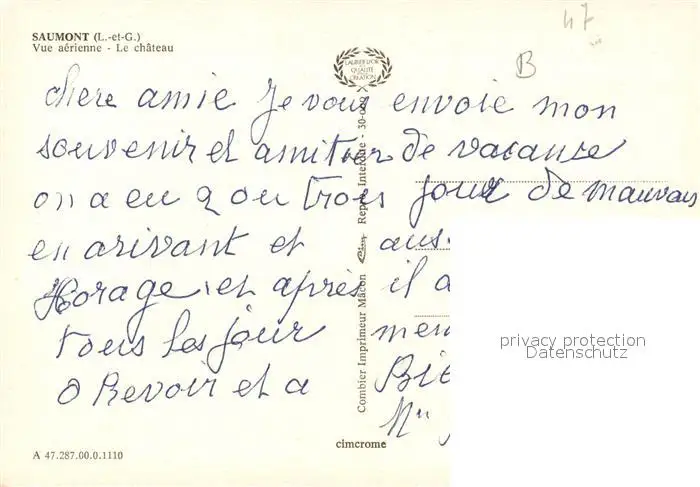 SAUMONT (L.-et-G.)
Vue aérienne - Le château
47
B
LAURIER D'OR
DE LA
QUALITÉ
CRÉATION
chere amie Je vous envoie mon
souvenir et amitier de vacanse
on a eu 2 ou trois jour de mauvais
en arivant et aus
Horage et après il a
tous les jour men
O Revoir et a Bie
Combier Imprimeur Mâcon Cim Repr. Interdite
cimcrome
A 47.287.00.0.1110
privacy protection
Datenschutz